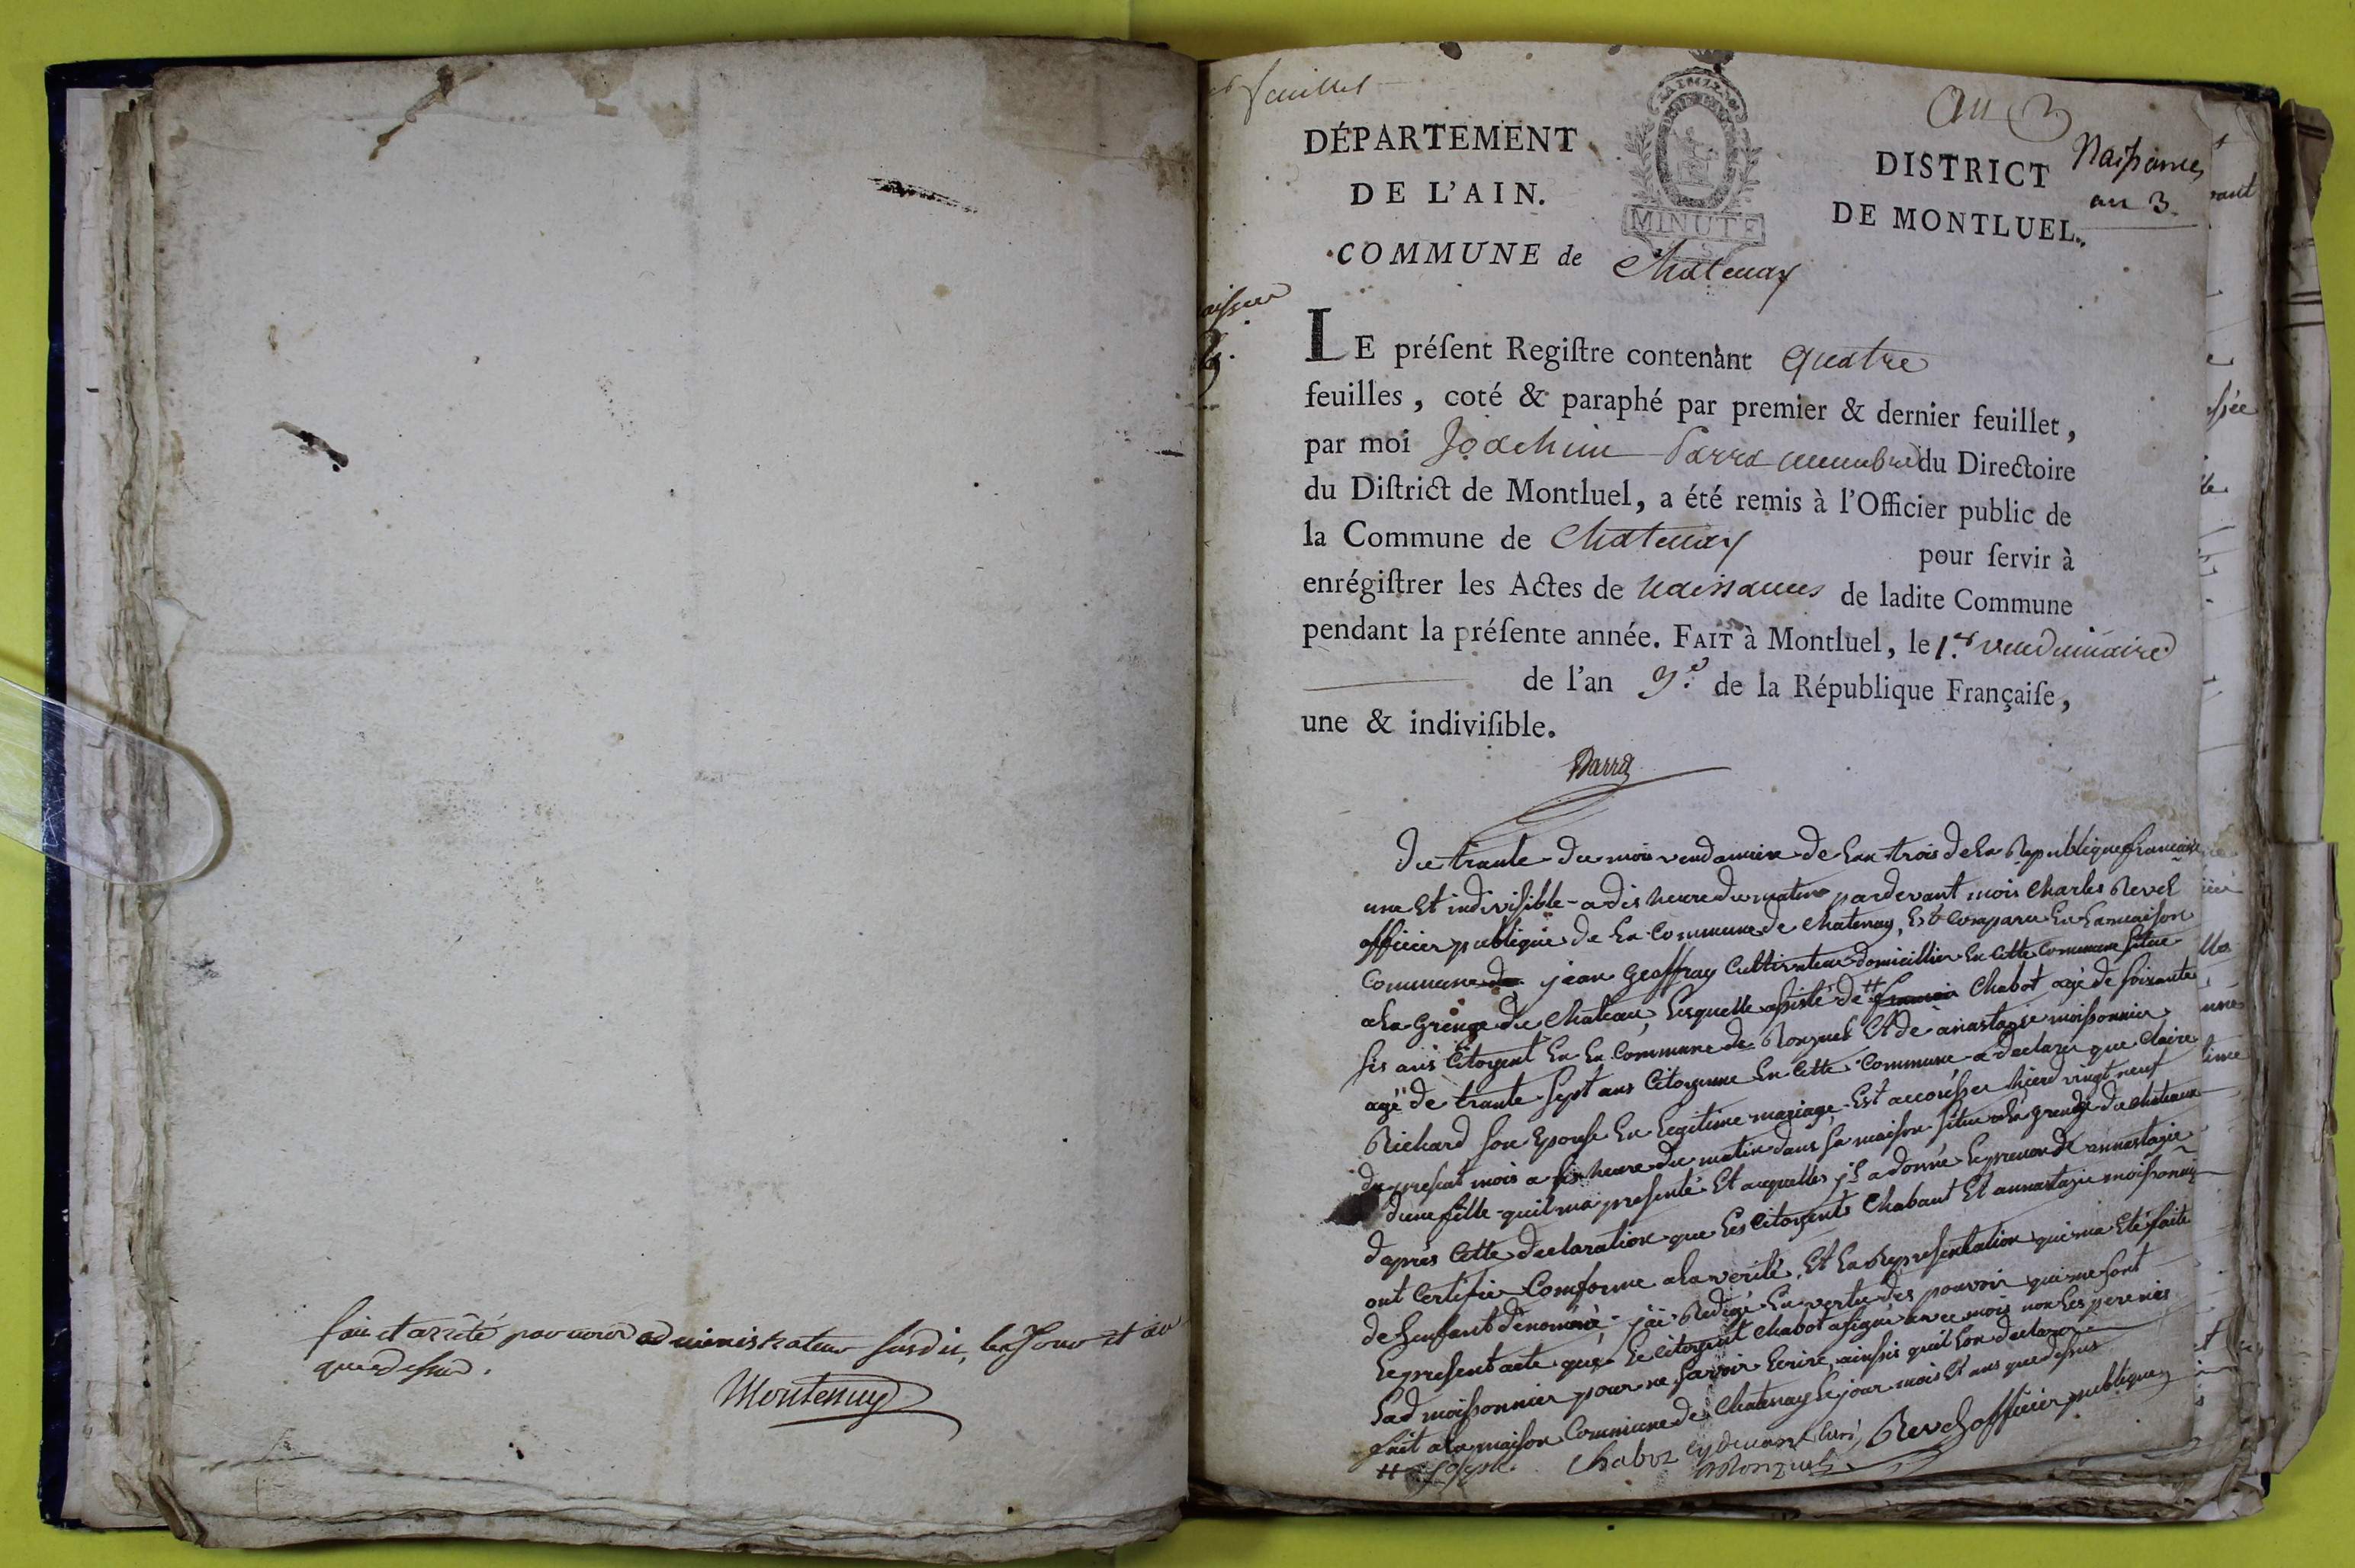 fait et arrêté par nous administrateur susdit, les Jour et an
que dessus.
Montenuy
feuilles
an 3
DÉPARTEMENT
DE L'AIN.
MINUTE
DISTRICT
DE MONTLUEL.
Naissances
an 3.
COMMUNE de Chatenay
LE préſent Regiſtre contenant quatre
feuilles, coté & paraphé par premier & dernier feuillet,
par moi Joachim Darra membre du Directoire
du Diſtrict de Montluel, a été remis à l'Officier public de
la Commune de Chatenay pour ſervir à
enrégiſtrer les Actes de naissances de ladite Commune
pendant la préſente année. FAIT à Montluel, le 1.er vendemiaire
de l'an 3.e de la République Françaiſe,
une & indiviſible.
Darra
du trante du mois vendamiere de lan trois de la Republique francaise
une et indivisible a dis heure du matin pardevant mois Charles Revel
officier publique de la Commune de Chatenay, Est Comparu En la maison
Commune jean Geoffray Cultivateur domicillier En Cette Commune situe
a la Grenge du Chateau, lesquelle assisté de # Chabot agé de soixante
sis ans Citoyent En la Commune de Ronzuel Et de anastazie moissonnier
agé de trante sept ans Citoyenne En Cette Commune a declarer que Claire
Richard son Epouse En legitime mariage Est accousher hierd vingt neuf
du presant mois a sis heure du matin dans sa maison situe a la grenge du chateaux
dune fille quil ma presenté Et auquelles jl a donné le prenon de annastazie
daprés Cette declaration que les Citoyents Chabaut Et annastazie moissonnier
ont Certifier Comforme a la verité, Et la Representation qui ma Eté faite
de lenfant denommé jai Redigé En vertu des pouvoir qui me sont
le present acte que le Citoyent Chabot a signé avec mois non les pere nis
lad moissonnier pour ne savoir Ecrire, ainssis quil Lon declare
fait a la maison Commune de Chatenay le jour mois Et ans que dessus
# joseph Chabot cy devant curé Revel officier publique
a Ronzuel